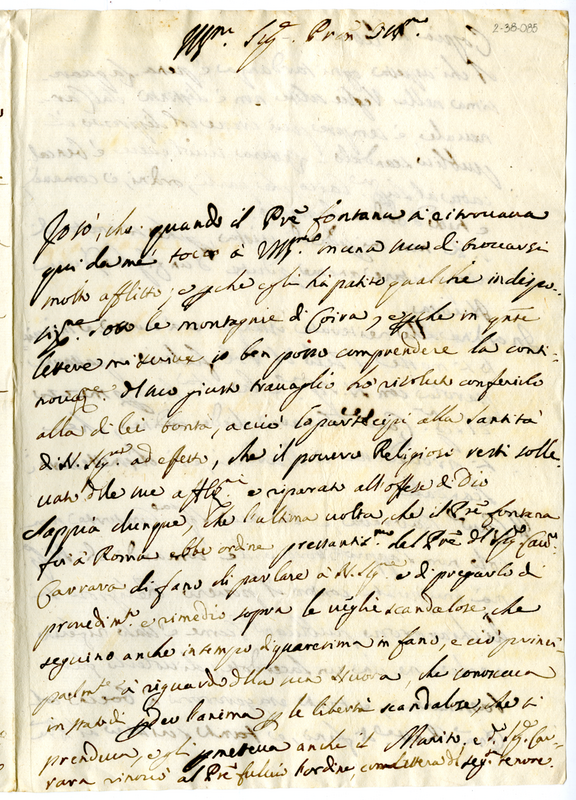 2-38-085
Ill.mo Sig.r Pron Col.mo
Io sò, che quando il Pre fontana si ritrovava
qui da me toccò à V.S. Ill.ma
molto afflitto, e perche egli hà patito qualche indispo-
ne. sotto le montagnie di Coira, e perche in q.nte
lettere mi scrive io ben posso comprendere la conti-
del suo giusto travaglio hò risoluto conferirlo
alla di lei bontà, acciò lo partecipi alla Santità
di N. Sig.re ad effetto, che il povero Religioso resti solle-
vato dalle sue afflni e riparato all'offese di Dio
Sappia dunque, che l'ultima volta, che il Pre fontana
fù à Roma ebbe ordine pressantis.mo dal Pre del Sig. Cav.
Carrara di fano di parlare à N. Sig.re e di pregarlo di
provedim.to e rimedio sopra le veglie scandalose, che
seguino anche in tempo di quaresima in fano, e ciò princi-
palm.te à riguardo della sua Nuora, che conosceva
in stato di perder l'anima p. le libertà scandalose, che si
prendeva, e gli permetteva anche il Marito, e d. Sig. Car-
rara rinovò al Pre fulvio l'ordine, con lettera di seg. tenore.